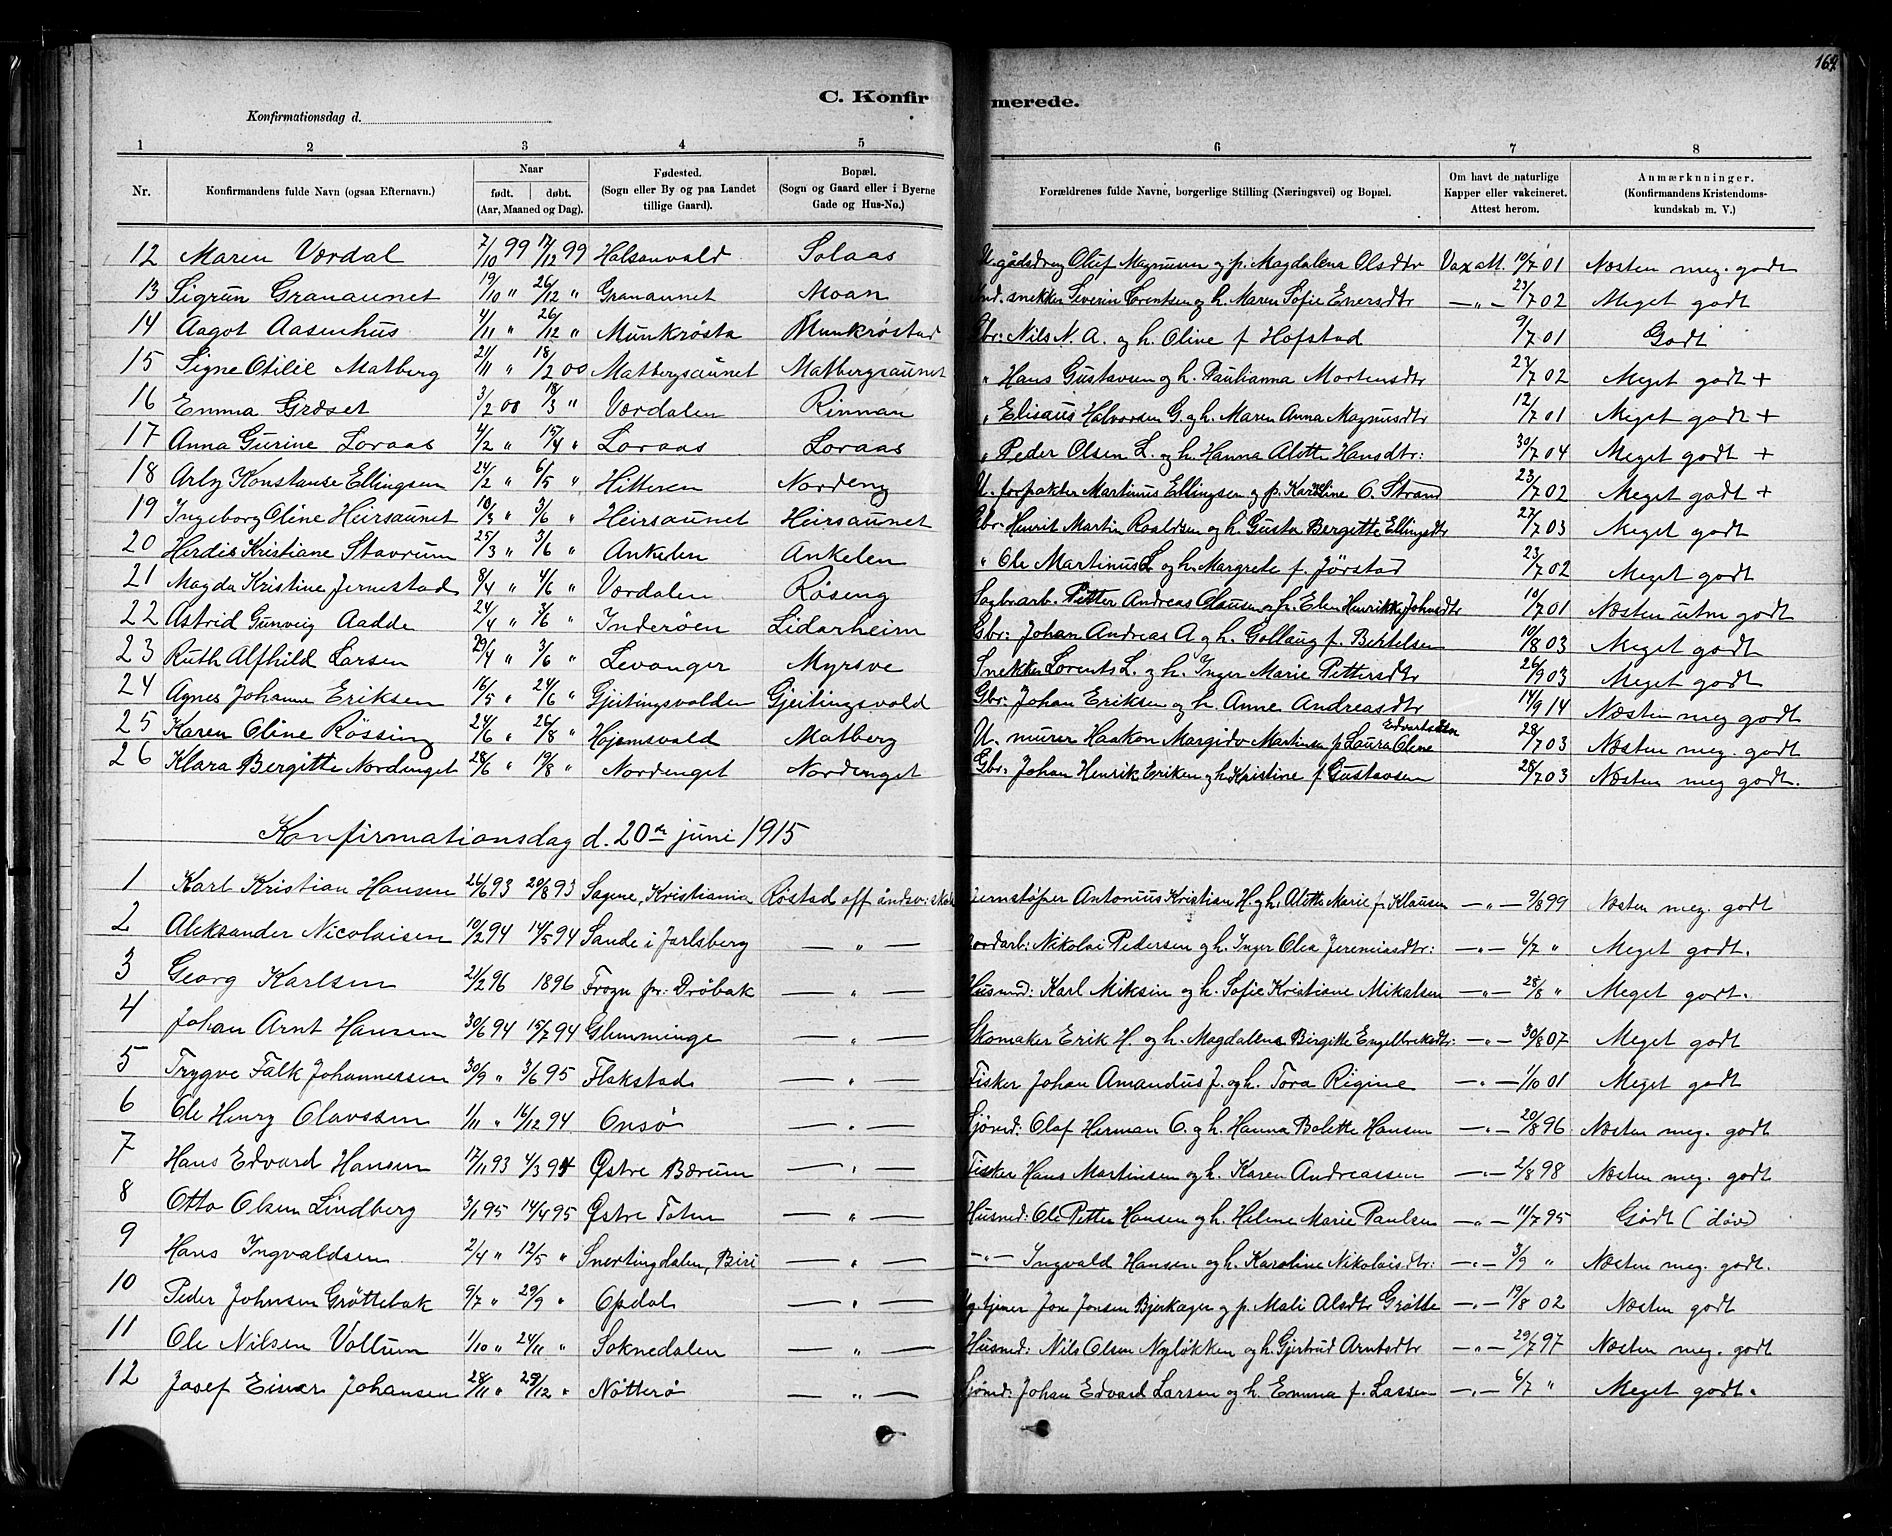 164
C. Konfirmerede.
Konfirmationsdag d.
1 2 3 4 5 6 7 8
Nr. Konfirmandens fulde Navn (ogsaa Efternavn.) Naar født. døbt. (Aar, Maaned og Dag). Fødested. (Sogn eller By og paa Landet tillige Gaard). Bopæl. (Sogn og Gaard eller i Byerne Gade og Hus-No.) Forældrenes fulde Navne, borgerlige Stilling (Næringsvei) og Bopæl. Om havt de naturlige Kapper eller vakcineret. Attest herom. Anmærkninger. (Konfirmandens Kristendomskundskab m. V.)
12 Maren Værdal 7/10 99 17/12 99 Halsanvald Solaas U. gådsdreng Oluf Magnusen og p. Magdalena Olsdtr Vax att. 10/7 01 Næsten meg. godt
13 Sigrun Granaunet 19/10 " 26/12 " Granaunet Moan Ind. snekker Severin Lorentsen og h. Maren Sofie Enersdtr —"— 23/7 02 Meget godt
14 Aagot Aasenhus 4/11 " 26/12 " Munkrøsta Munkrøstad Gbr: Nils N. A. og h. Oline f Hofstad 9/7 01 Godt
15 Signe Otilie Matberg 21/11 " 18/2 00 Matbergsaunet Matbergsaunet " Hans Gustavsen og h. Paulianna Mortensdtr 23/7 02 Meget godt +
16 Emma Græset 3/2 00 18/3 " Værdalen Rinnan " Elisæus Halvorsen G. og h. Maren Anna Magnusdtr 12/7 01 Meget godt +
17 Anna Gurine Loraas 4/2 " 15/4 " Loraas Loraas " Peder Olsen L. og h. Hanna Alette Hansdtr: 30/7 04 Meget godt +
18 Arly Konstanse Ellingsen 24/2 " 6/5 " Hitteren Nordeng U. forpakter Martinus Ellingsen og p. Karoline O. Strand 23/7 02 Meget godt +
19 Ingeborg Oline Heirsaunet 10/3 " 3/6 " Heirsaunet Heirsaunet Gbr: Henrik Martin Roaldsen og h. Gusta Bergitte Ellingsdtr 27/7 03 Meget godt
20 Herdis Kristiane Stavrum 25/3 " 3/6 " Ankelen Ankelen " Ole Martinus L og h. Margrete f. Jørstad 23/7 02 Meget godt
21 Magda Kristine Jernestad 8/4 " 4/6 " Værdalen Røseng Sagbrarb. Petter Andreas Olausen og h. Elen Henrikke Johnsdtr 10/7 01 Næsten utm godt
22 Astrid Gunveig Aadde 24/4 " 3/6 " Inderøen Lidarheim Gbr: Johan Andreas A og h. Gollaug f. Bertelsen 10/8 03 Meget godt
23 Ruth Alfhild Larsen 29/4 " 3/6 " Levanger Myrsve Snekker Lorents L. og h. Inger Marie Pettersdtr 26/9 03 Meget godt
24 Agnes Johanne Eriksen 16/5 " 24/6 " Gjeitingsvolden Gjeitingsvold Gbr: Johan Eriksen og h. Anne Andreasdtr 14/9 14 Næsten meg godt
25 Karen Oline Røssing 24/6 " 26/8 " Hojemsvald Matberg U. murer Haakon Margido Martinsen p Laura Oline Edvartsen 28/7 03 Næsten meg. godt
26 Klara Bergitte Nordenget 28/6 " 19/8 " Nordenget Nordenget Gbr: Johan Henrik Eriken og h Kristine f. Gustavsen 28/7 03 Næsten meg godt.
Konfirmationsdag d. 20de juni 1915
1 Karl Kristian Hansen 26/6 93 20/8 93 Sagene, Kristiania Røstad off åndsv. skole Jernstøper Antonius Kristian H. og h. Alette Marie f. Klausen —"— 9/8 99 Næsten meg. godt
2 Aleksander Nicolaisen 10/2 94 14/5 94 Sande i Jarlsberg — " — Jordarb: Nikolai Pedersen og h. Inger Olea Jeremiasdtr: —"— 6/7 " Meget godt.
3 Georg Karlsen 21/2 96 1896 Frogn pr: Drøbak — " — Husmd: Karl Miksin og h. Sofie Kristiane Mikalsen —"— 28/8 " Meget godt.
4 Johan Arnt Hansen 30/6 94 15/7 94 Glemminge — " — Skomaker Erik H. og h. Magdalena Birgitte Engelbrektdtr: —"— 30/8 07 Meget godt
5 Trygve Falk Johannessen 30/9 " 3/6 95 Flakstad — " — Fisker Johan Amandus J. og h. Tora Rigine —"— 1/10 01 Meget godt
6 Ole Henry Olavssen 1/11 " 16/12 94 Onsø — " — Sjømd: Olaf Herman O. og h. Hanna Bolette Hansen —"— 20/8 96 Næsten meg. godt
7 Hans Edvard Hansen 17/11 93 4/3 94 Østre Bærum — " — Fisker Hans Martinsen og h. Karen Andreassen —"— 2/8 98 Næsten meg. godt
8 Otto Olsen Lindberg 3/1 95 14/4 95 Østre Toten — " — Husmd: Ole Petter Hansen og h. Helene Marie Paulsen —"— 11/7 95 Godt (døv)
9 Hans Ingvaldsen 2/4 " 12/5 " Snertingdalen, Biri — " — —"— Ingvald Hansen og h. Karoline Nikolaisdtr: —"— 3/9 " Næsten meg. godt.
10 Peder Johnsen Grøttebak 9/7 " 29/9 " Opdal — " — Ug. tjener Jon Jonsen Bjerkager og p. Mali Alsdtr Grøtte —"— 19/8 02 Næsten godt
11 Ole Nilsen Vollum 1/10 " 24/11 " Soknedalen — " — Husmd: Nils Olsen Nyløkken og h. Gjertrud Arntsdtr —"— 29/7 97 Næsten meg. godt
12 Josef Einar Johansen 28/11 " 29/12 " Nøtterø — " — Sjømd: Johan Edvard Larsen og h. Emma f. Lassen —"— 6/7 " Meget godt.